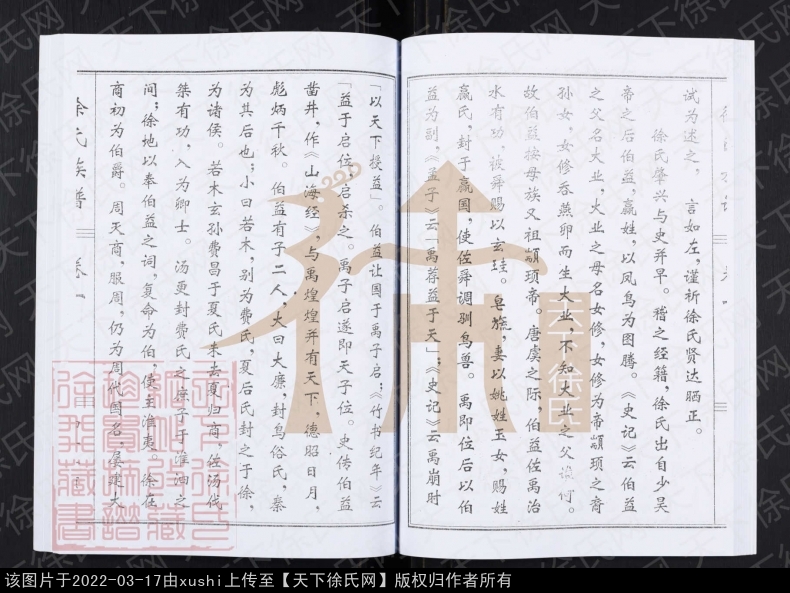 试为述之，言如左，谨祈徐氏贤达晒正。
徐氏肇兴与史并早。稽之经籍，徐氏出自少昊
帝之后伯益，嬴姓，以凤鸟为图腾。《史记》云伯益
之父名大业，大业之母名女修，女修为帝颛顼之裔
孙女，女修吞燕卵而生大业，不知大业之父谁何。
故伯益按母族又祖颛顼帝。唐虞之际，伯益佐禹治
水有功，被舜赐以玄珪。皂旒，妻以姚姓玉女，赐姓
嬴氏，封于嬴国，使佐舜调驯鸟兽。禹即位后以伯
益为副，《孟子》云「禹荐益于天」；《史记》云禹崩时
「以天下授益」。伯益让国于禹子启；《竹书纪年》云
「益于启位，启杀之。禹子启遂即天子位。史传伯益
凿井，作《山海经》，与禹煌煌并有天下，德昭日月，
彪炳千秋。伯益有子二人，大曰大廉，封鸟俗氏，秦
为其后也；小曰若木，别为费氏，夏后氏封之于徐，
为诸侯。若木玄孙费昌于夏氏末去夏归商，佐汤伐
桀有功，入为卿士。汤更封费氏之庶子于淮泗之
间；徐地以奉伯益之词，复命为伯，使主淮夷。徐在
商初为伯爵。周灭商，服周，仍为周代国名，屡建大
徐氏族谱 卷一
天下徐氏
该图片于2022-03-17由xushi上传至【天下徐氏网】版权归作者所有